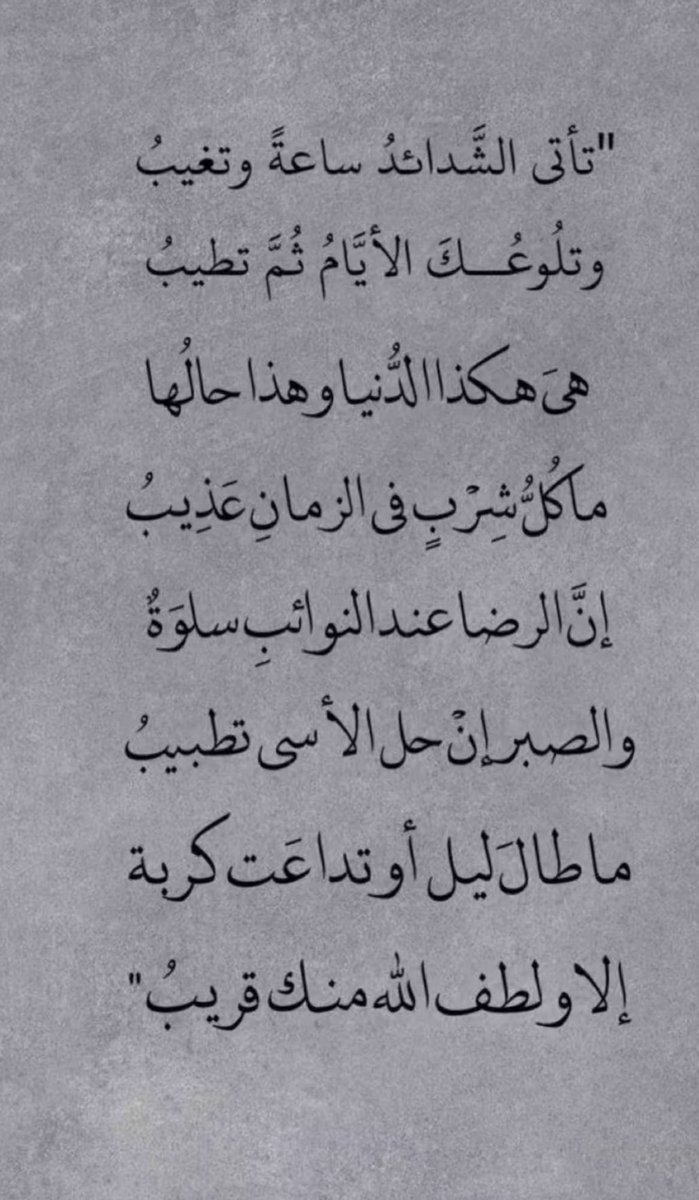 "تأتى الشَّدائدُ ساعةً وتغيبُ
وتلُوعُـــكَ الأيَّامُ ثُمَّ تطيبُ
هىَ هكذا الدُّنيا وهذا حالُها
ما كُلُّ شِرْبٍ فى الزمانِ عَذِيبُ
إنَّ الرضا عند النوائبِ سلوَةٌ
والصبر إنْ حل الأسى تطبيبُ
ما طالَ ليل أو تداعَت كربة
إلا ولطف الله منك قريبُ"